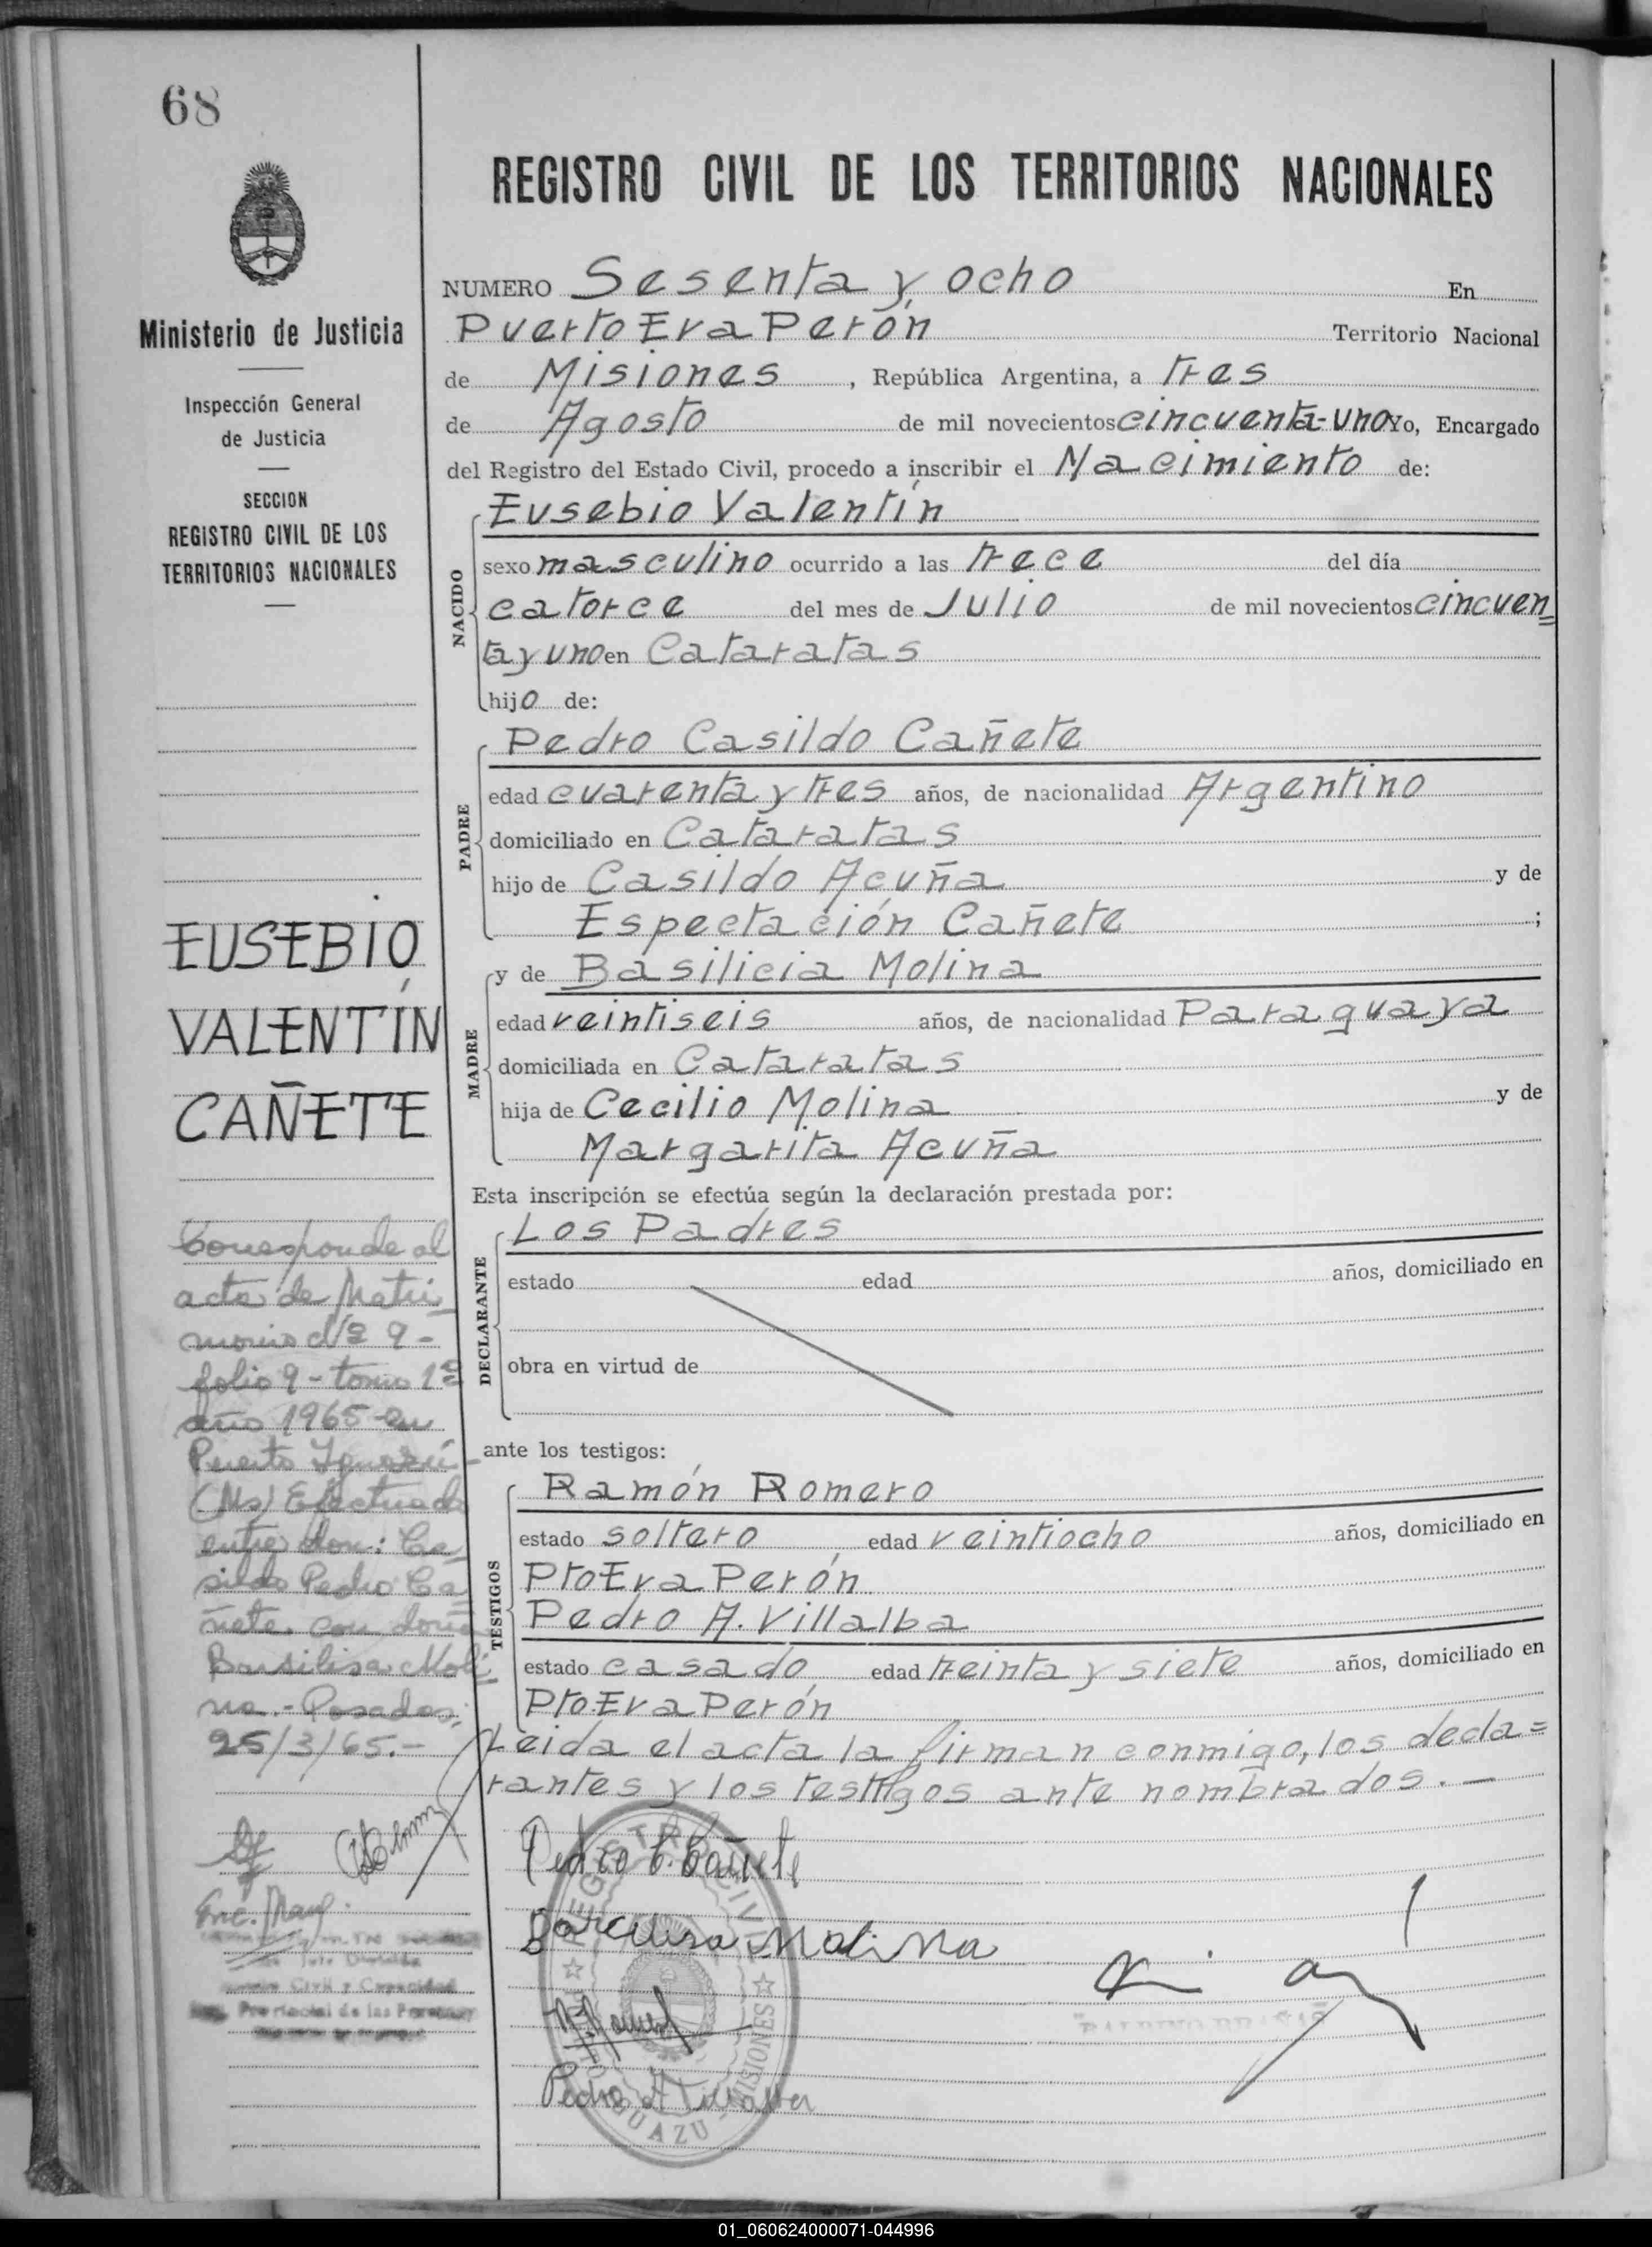 68
Ministerio de Justicia
Inspección General
de Justicia
SECCION
REGISTRO CIVIL DE LOS
TERRITORIOS NACIONALES
EUSEBIO
VALENTÍN
CAÑETE
Corresponde al
acta de Matri-
monio Nº 9 -
folio 9 - tomo 1º
año 1965 en
Puerto Iguazú -
(Ms) Efectuado
entre don: Ca-
sildo Pedro Ca-
ñete con doña
Basilisa Moli-
na.- Posadas;
25/3/65.-
REGISTRO CIVIL DE LOS TERRITORIOS NACIONALES
NUMERO Sesenta y ocho En
Puerto Eva Perón Territorio Nacional
de Misiones , República Argentina, a tres
de Agosto de mil novecientos cincuenta-uno Yo, Encargado
del Registro del Estado Civil, procedo a inscribir el Nacimiento de:
NACIDO
Eusebio Valentín
sexo masculino ocurrido a las trece del día
catorce del mes de Julio de mil novecientos cincuen=
ta y uno en Cataratas
hijo de:
PADRE
Pedro Casildo Cañete
edad cuarenta y tres años, de nacionalidad Argentino
domiciliado en Cataratas
hijo de Casildo Acuña y de
Espectación Cañete ;
MADRE
y de Basilicia Molina
edad veintiseis años, de nacionalidad Paraguaya
domiciliada en Cataratas
hija de Cecilio Molina y de
Margarita Acuña
Esta inscripción se efectúa según la declaración prestada por:
DECLARANTE
Los Padres
estado edad años, domiciliado en
obra en virtud de
ante los testigos:
TESTIGOS
Ramón Romero
estado soltero edad veintiocho años, domiciliado en
Pto Eva Perón
Pedro A. Villalba
estado casado edad treinta y siete años, domiciliado en
Pto. Eva Perón
Leida el acta la firman conmigo, los decla=
rantes y los testigos ante nombrados. —
Pedro C. Cañete
Molina
REGISTRO CIVIL
IGUAZU - MISIONES
Pedro A Villalba
01_060624000071-044996